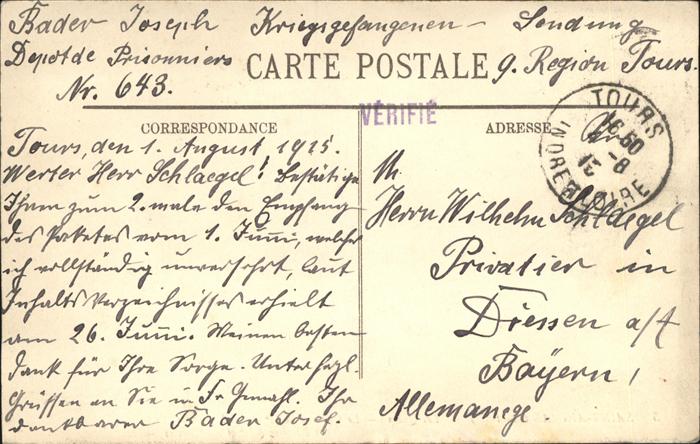 Bader Joseph Kriegsgefangenen – Sendung
Depot de Prisonniers
CARTE POSTALE
9. Region Tours.
Nr. 643.
VÉRIFIÉ
CORRESPONDANCE
ADRESSE
TOURS
16 50
1 - 8
15
INDRE ET LOIRE
Tours, den 1. August 1915.
Werter Herr Schlaegel! Bestätige
Ihnen zum 2. male den Empfang
des Paketes vom 1. Juni, welches
ich vollständig unversehrt, laut
Inhalts Verzeichnisses erhielt
am 26. Juni. Meinen besten
Dank für Ihre Sorge. Unter herzl.
Grüssen an Sie u. Fr. Gemahl. Ihr
dankbarer Bader Josef.
An
Herrn Wilhelm Schlaegel
Privatier in
Diessen a/A
Bayern,
Allemange